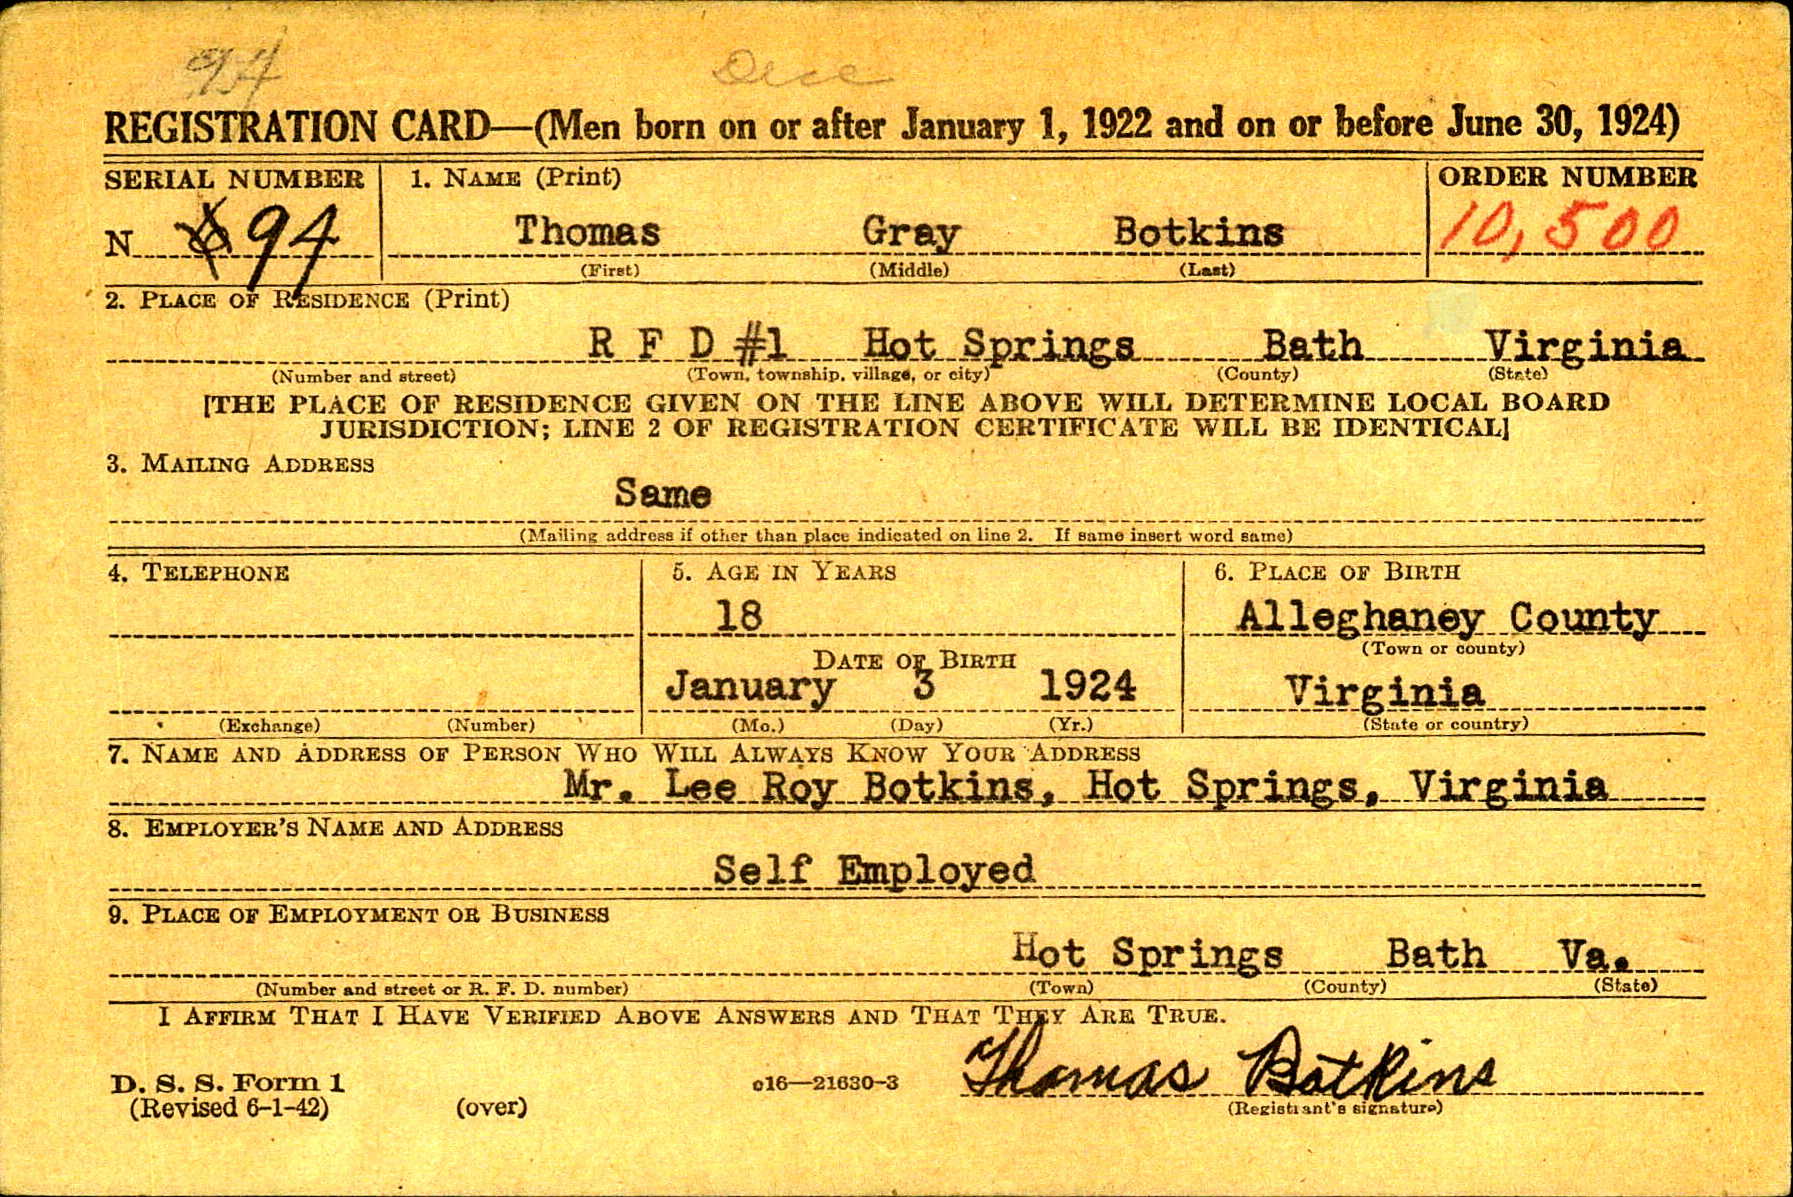 94 Dece
REGISTRATION CARD—(Men born on or after January 1, 1922 and on or before June 30, 1924)
SERIAL NUMBER 1. NAME (Print) ORDER NUMBER
N 94 Thomas Gray Botkins 10,500
(First) (Middle) (Last)
2. PLACE OF RESIDENCE (Print)
R F D #1 Hot Springs Bath Virginia
(Number and street) (Town, township, village, or city) (County) (State)
[THE PLACE OF RESIDENCE GIVEN ON THE LINE ABOVE WILL DETERMINE LOCAL BOARD
JURISDICTION; LINE 2 OF REGISTRATION CERTIFICATE WILL BE IDENTICAL]
3. MAILING ADDRESS
Same
(Mailing address if other than place indicated on line 2. If same insert word same)
4. TELEPHONE 5. AGE IN YEARS 6. PLACE OF BIRTH
18 Alleghaney County
(Town or county)
DATE OF BIRTH
January 3 1924 Virginia
(Exchange) (Number) (Mo.) (Day) (Yr.) (State or country)
7. NAME AND ADDRESS OF PERSON WHO WILL ALWAYS KNOW YOUR ADDRESS
Mr. Lee Roy Botkins, Hot Springs, Virginia
8. EMPLOYER'S NAME AND ADDRESS
Self Employed
9. PLACE OF EMPLOYMENT OR BUSINESS
Hot Springs Bath Va.
(Number and street or R. F. D. number) (Town) (County) (State)
I AFFIRM THAT I HAVE VERIFIED ABOVE ANSWERS AND THAT THEY ARE TRUE.
Thomas Botkins
D. S. S. Form 1 c16—21630-3
(Revised 6-1-42) (over) (Registrant's signature)